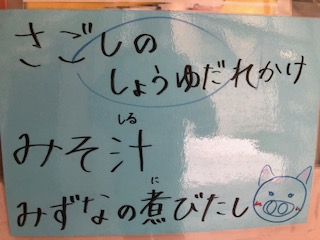 さごしの
しょうゆだれかけ
みそ汁
しる
みずなの煮びたし
に